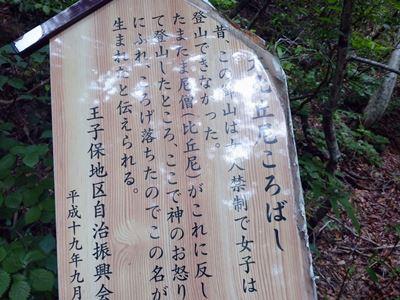 比丘尼ころばし
昔、この山は女人禁制で女子は
登山できなかった。
たまたま尼僧(比丘尼)がこれに反し
て登山したところ、ここで神のお怒り
にふれ、ころげ落ちたのでこの名が
生まれたと伝えられる。
王子保地区自治振興会
平成十九年九月